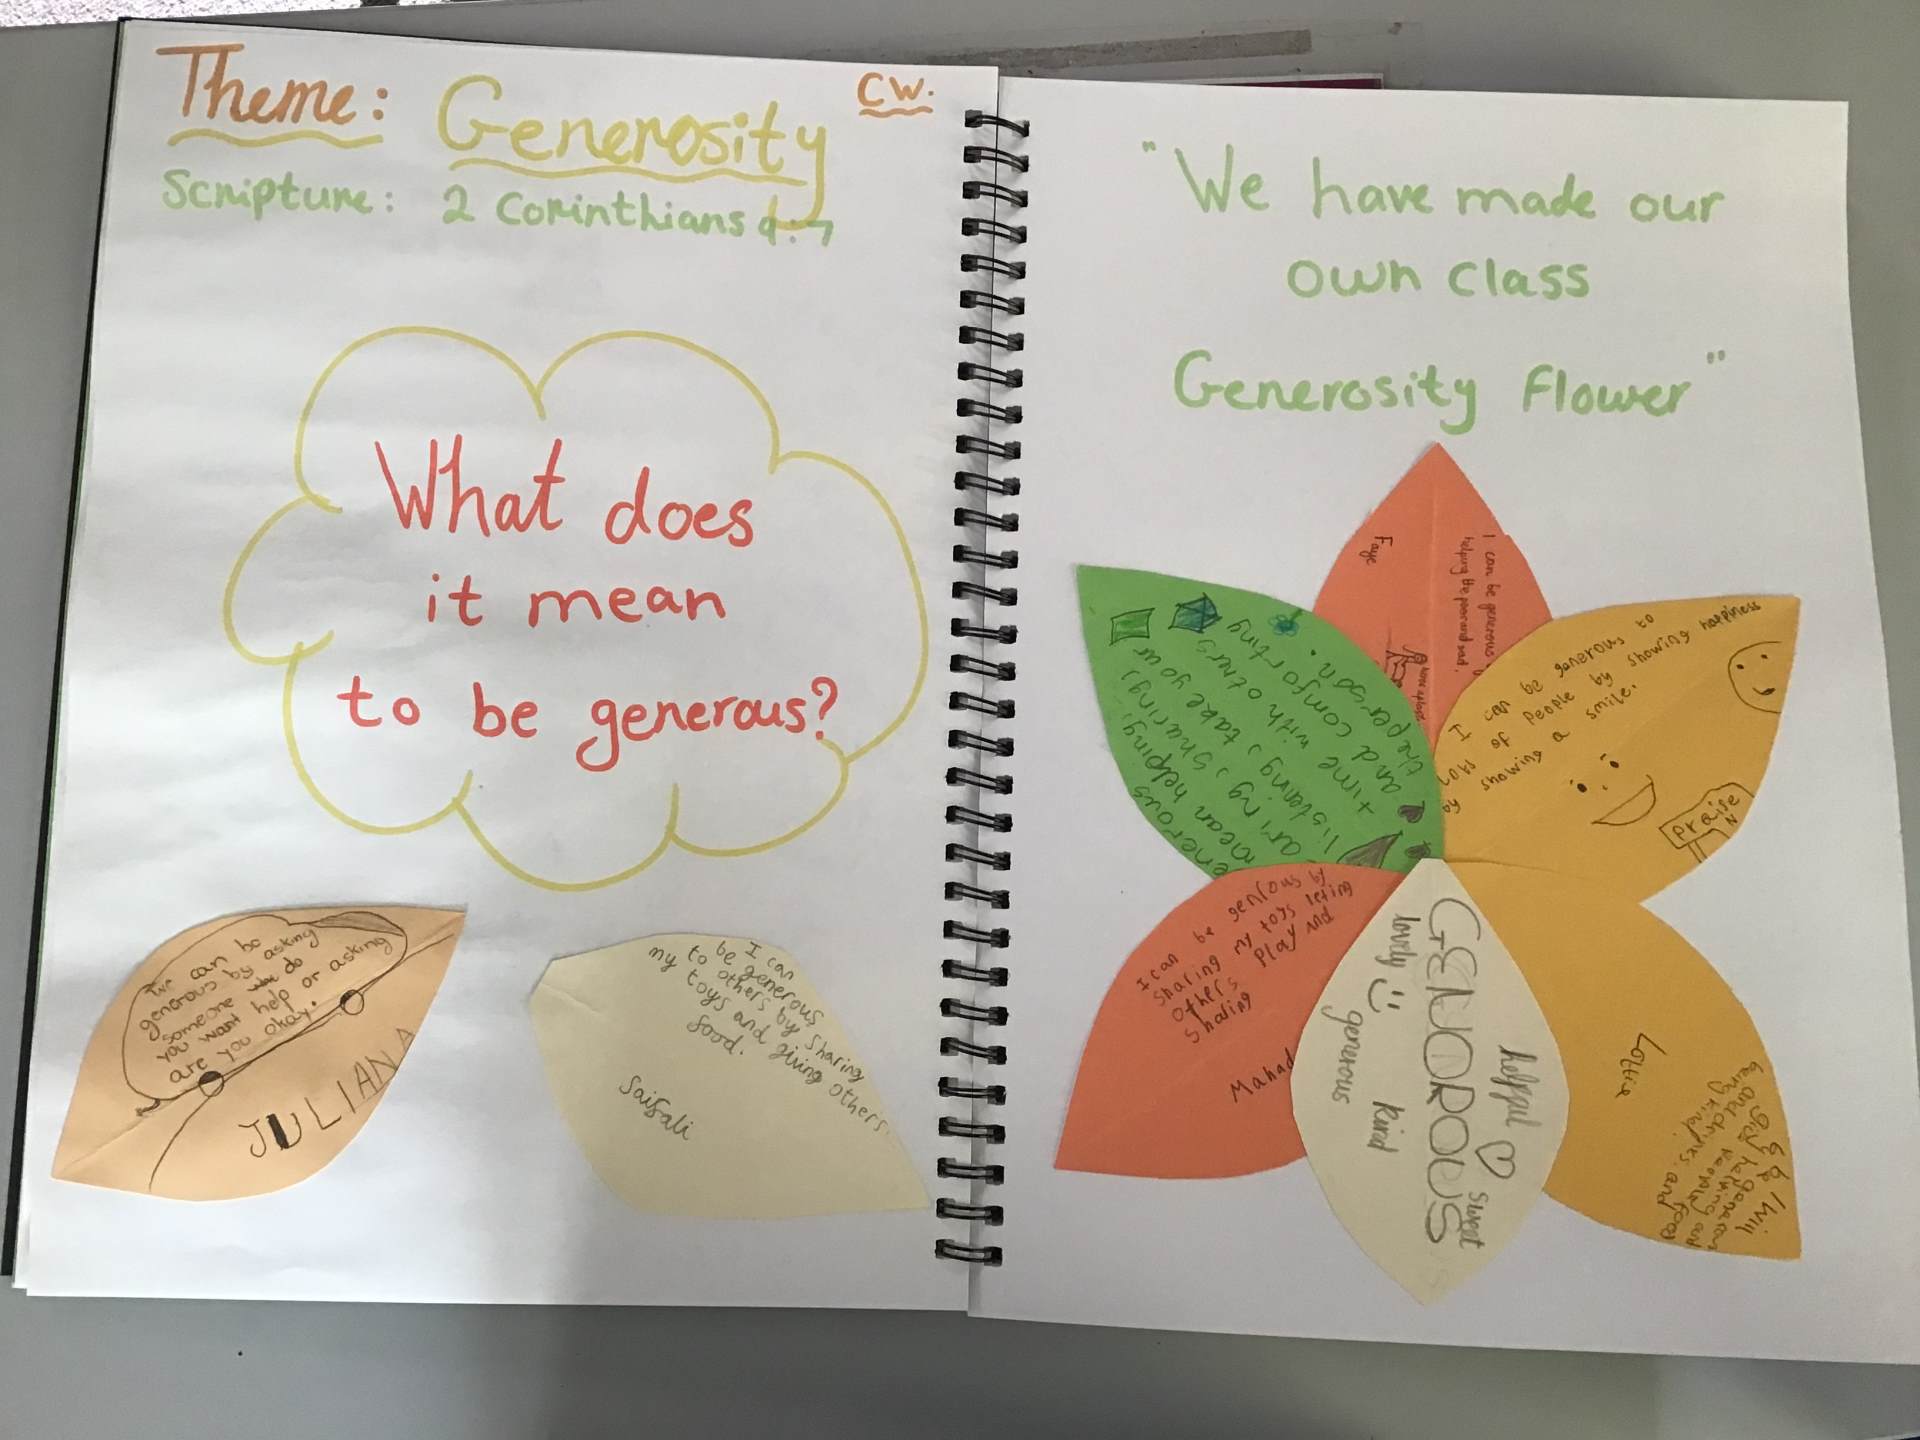 Theme: Generosity
CW.
Scripture: 2 Corinthians 9:7
What does
it mean
to be generous?
We can be
generous by asking
someone do
you want help or asking
are you okay.
JULIANA
I can
be generous
to others by sharing
my toys and giving others
food.
Saifali
"We have made our
own class
Generosity Flower"
I can be generous
helping the poor and sad.
Faye
I can be generous to
lots of people by showing happiness
by showing a smile.
praise
mean helping,
sharing,
listening, take your
time with others
and comforting
the person.
I can be genrous by
sharing my toys leting
others play and
Shaling
Mahad
GENJOROUS
lovely
generous
kind
helpful
sweet
Lottie
I will
be generous